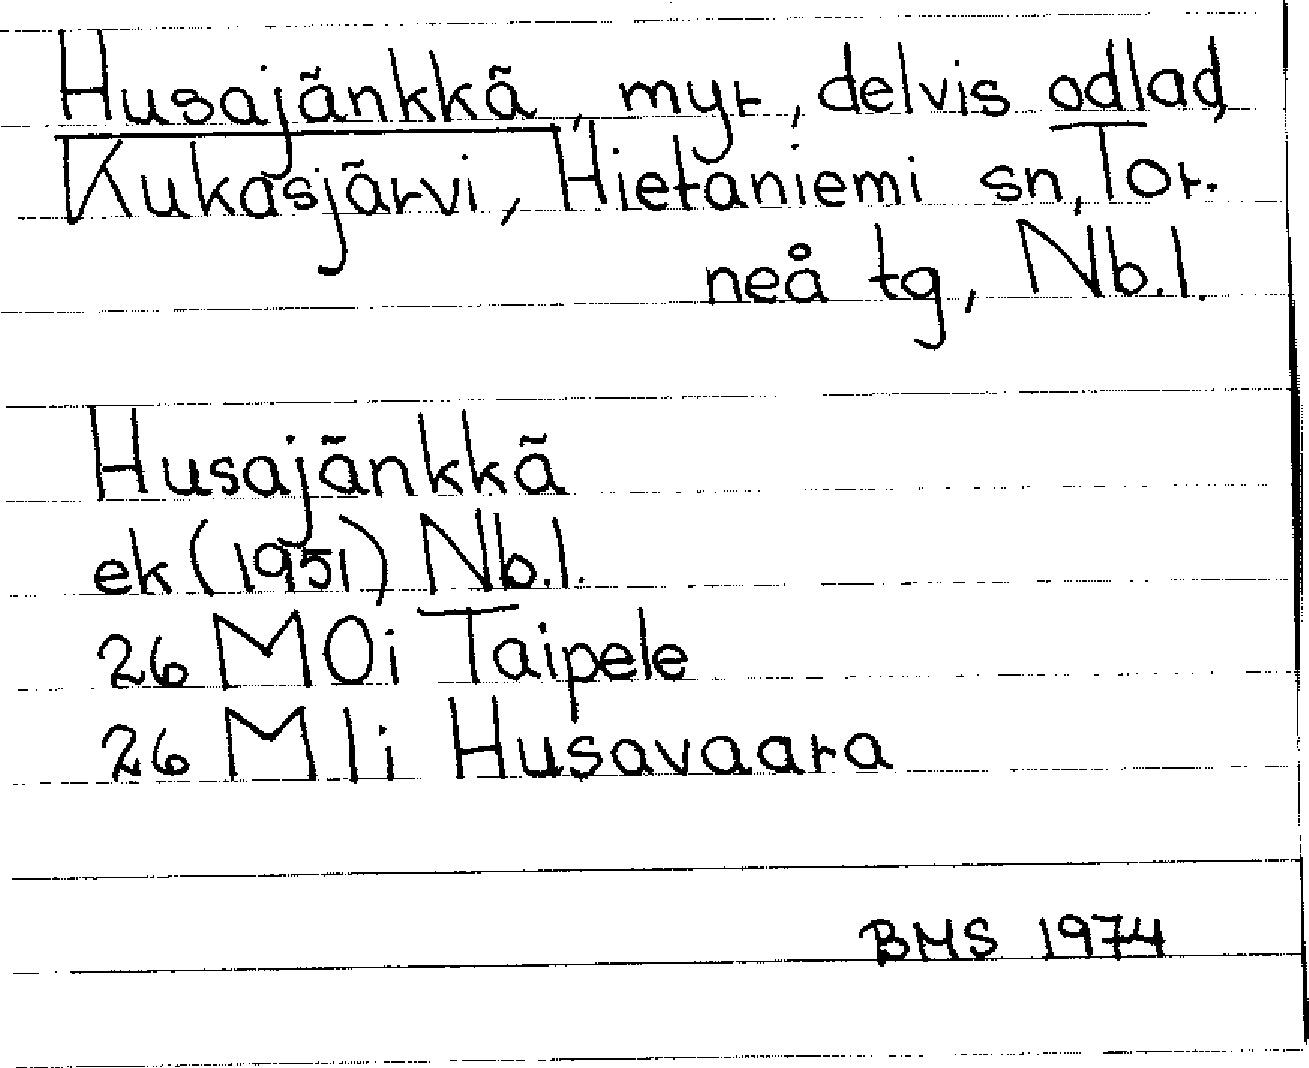 Husajänkkä, myr, delvis odlad,
Kukasjärvi, Hietaniemi sn, Tor-
neå tg, Nb.l.
Husajänkkä
ek (1951) Nb.l.
26 M 0i Taipele
26 M 1i Husavaara
BMS 1974